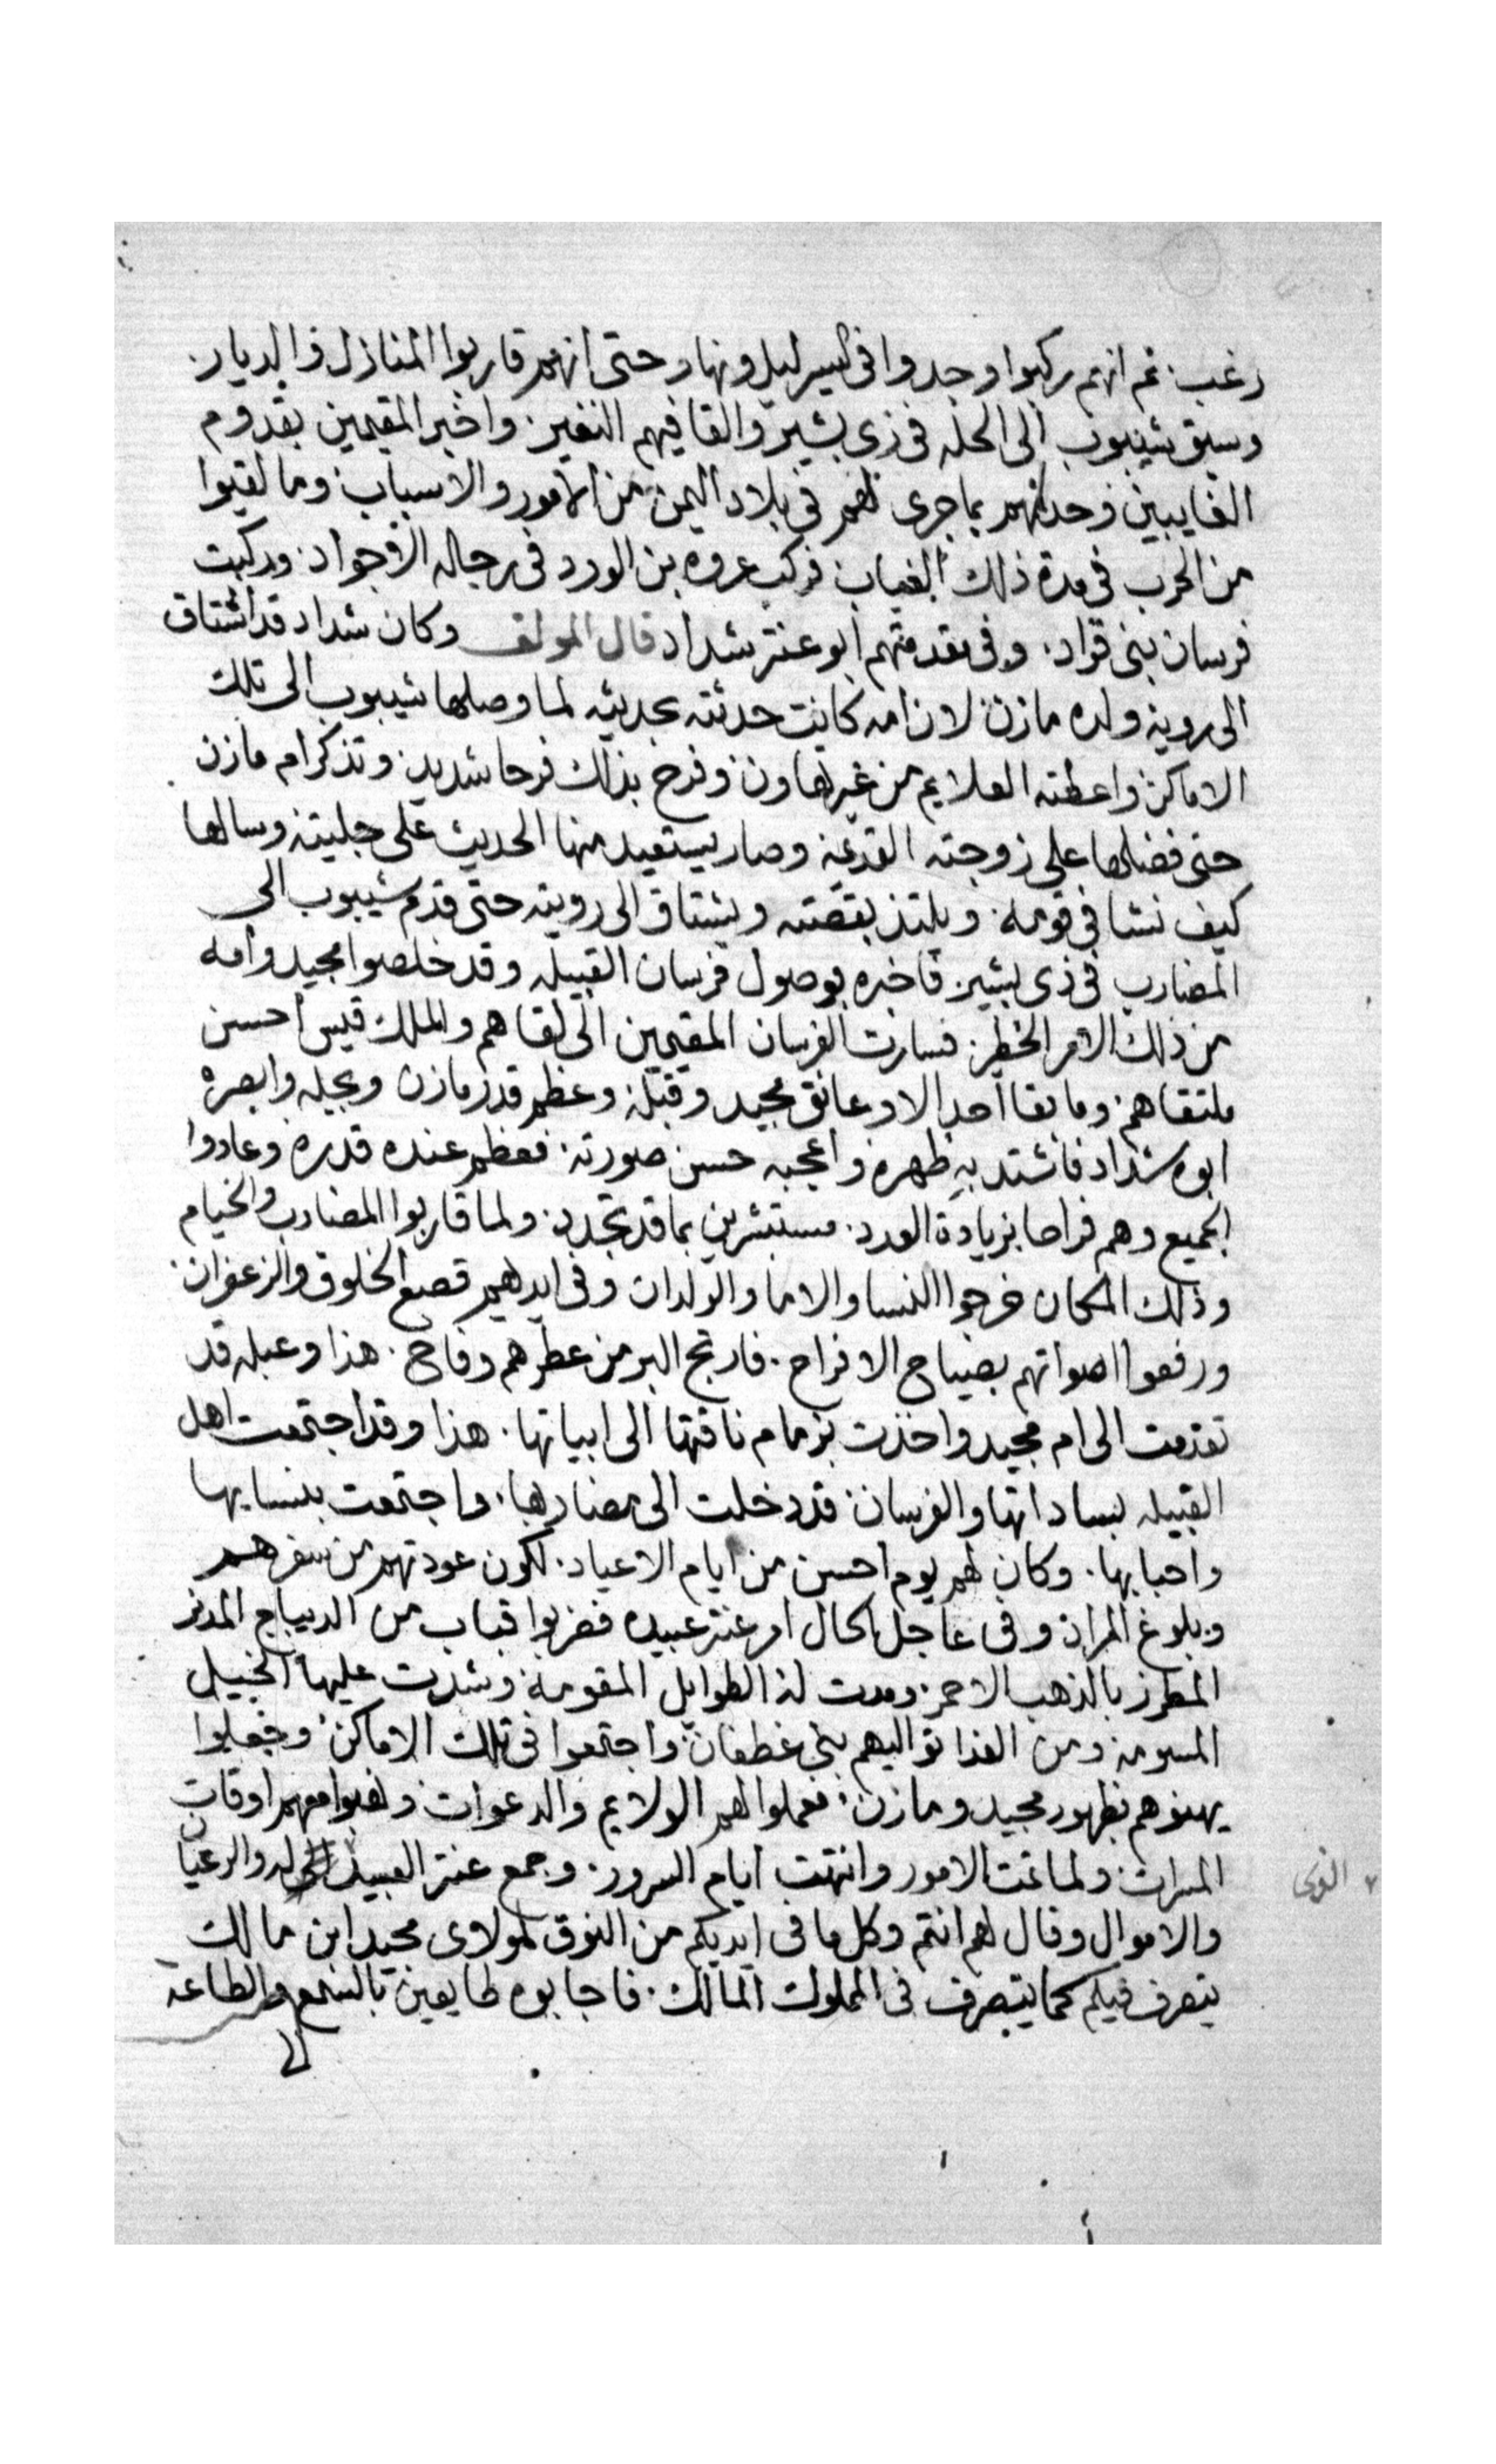 رغب. ثم انهم ركبوا وجدوا فى السير ليل ونهار حتى انهم قاربوا المنازل والديار.
وسبق شيبوب الى الحله فى زى بشير والقا فيهم النفير. واخبر المقيمين بقدوم
الغايبين وحدثهم بما جرى لهم فى بلاد اليمن من الامور والاسباب وما لقيوا
من الحرب فى مدة ذلك الغياب فركب عروه بن الورد فى رجاله الاجواد. وركبت
فرسان بنى قراد. وفى مقدمتهم ابو عنتر شداد قال المولف وكان شداد قد اشتاق
الى روية ولده مازن لان امه كانت حدثته بحديثه لما وصلها شيبوب الى تلك
الاماكن واعطته العلايم من غير تهاون وفرح بذلك فرحا شديد وتذكر ام مازن
حتى فضلها على زوجته القديمة وصار يستعيد منها الحديث على جليته وسالها
كيف نشا فى قومه. ويلتذ بقصته ويشتاق الى رويته حتى قدم شيبوب الى
المضارب فى زى بشير فاخبره بوصول فرسان القبيله وقد خلصوا مجيد وامه
من ذلك الامر الخطير. فسارت الفرسان المقيمين الى لقاهم والملك قيس احسن
ملتقاهم. وما بقا احد الا وعانق مجيد وقبله وعظم قدر مازن وبجله وابصره
ابوه شداد فاشتد به ظهره واعجبه حسن صورته. فعظم عنده قدره وعادوا
الجميع وهم فراحا بزيادة العدد. مستبشرين بما قد تجدد. ولما قاربوا المضارب والخيام
وذلك المكان خرجوا النسا والاما والولدان وفى ايديهم قصع الخلوق والزعفران.
ورفعوا اصواتهم بصياح الافراح. فارتج البر من عطرهم وفاح. هذا وعبله قد
تقدمت الى ام مجيد واخذت بزمام ناقتها الى ابياتها. هذا وقد اجتمعت اهل
القبيله بساداتها والفرسان قد دخلت الى مضاربها. واجتمعت بنسايها
واحبابها. وكان لهم يوم احسن من ايام الاعياد. لكون عودتهم من سفرهم
وبلوغ المراد وفى عاجل الحال امر عنتر عبيده فضربوا قباب من الديباج المدنر
المطرز بالذهب الاحمر. ومدت له الطوايل المقومة وشدت عليها الخيل
المسومة ومن الغذا توا اليهم بنى غطفان واجتمعوا فى تلك الاماكن وجعلوا
يهنوهم بظهور مجيد ومازن. فعملوا لهم الولايم والدعوات ولعبوا معهم اوقات
المسرات ولما تمت الامور وانتهت ايام السرور. وجمع عنتر العبيد والرعيان
والاموال وقال لهم انتم وكل ما فى ايديكم من النوق لمولاى مجيد ابن مالك
يتصرف فيكم كما يتصرف فى المملوك المالك. فاجابوه طايعين بالسمع والطاعه